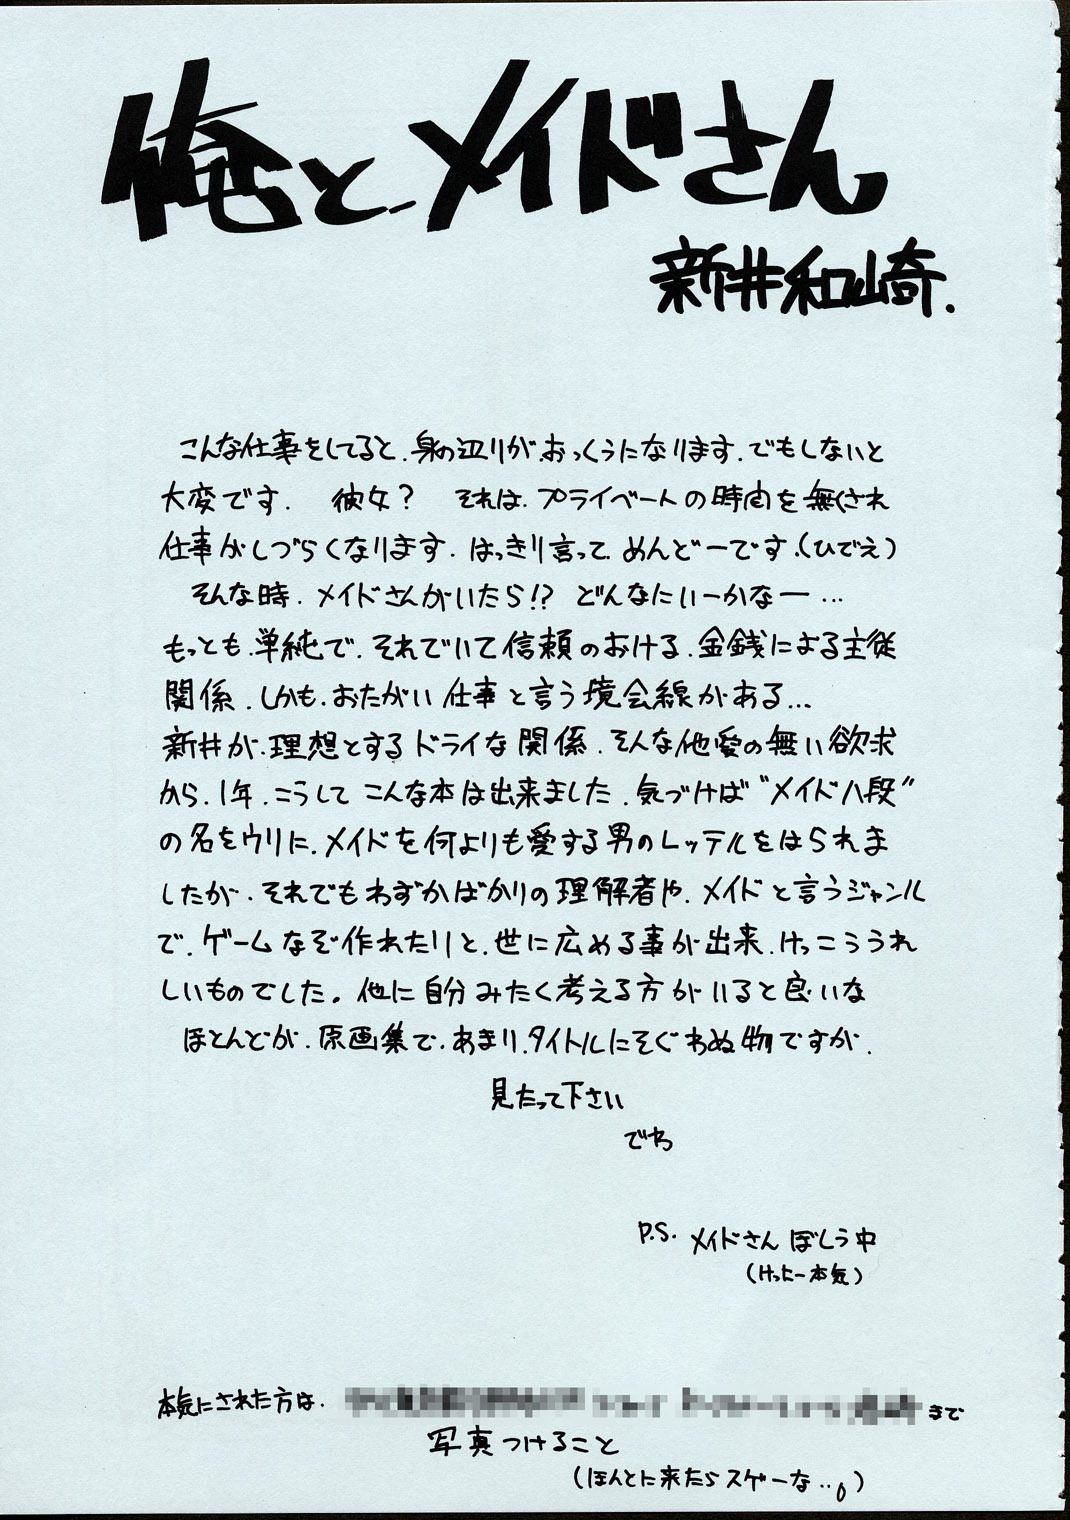 俺とメイドさん
新井和崎.
こんな仕事をしてると、身の辺りが、おっくうになります、でもしないと
大変です. 彼女? それは、プライベートの時間を無くされ
仕事がしづらくなります、はっきり言って、めんどーです、(ひでえ)
そんな時、メイドさんがいたら!? どんなにいーかなー…
もっとも、単純で、それでいて信頼のおける、金銭による主従
関係、しかも、おたがい仕事と言う境会線がある…
新井が、理想とするドライな関係、そんな他愛の無い欲求
から、1年、こうしてこんな本は出来ました、気づけば“メイド八段”
の名をウリに、メイドを何よりも愛する男のレッテルをはられま
したが、それでもわずかばかりの理解者や、メイドと言うジャンル
で、ゲームなぞ作れたりと、世に広める事が出来、けっこううれ
しいものでした。他に自分みたく考える方がいると良いな
ほとんどが、原画集で、あまり、タイトルにそぐわぬ物ですが、
見たって下さい
でわ
P.S. メイドさん ぼしう中
(けっこー本気)
本気にされた方は、
まで
写真つけること
(ほんとに来たらスゲーな‥)